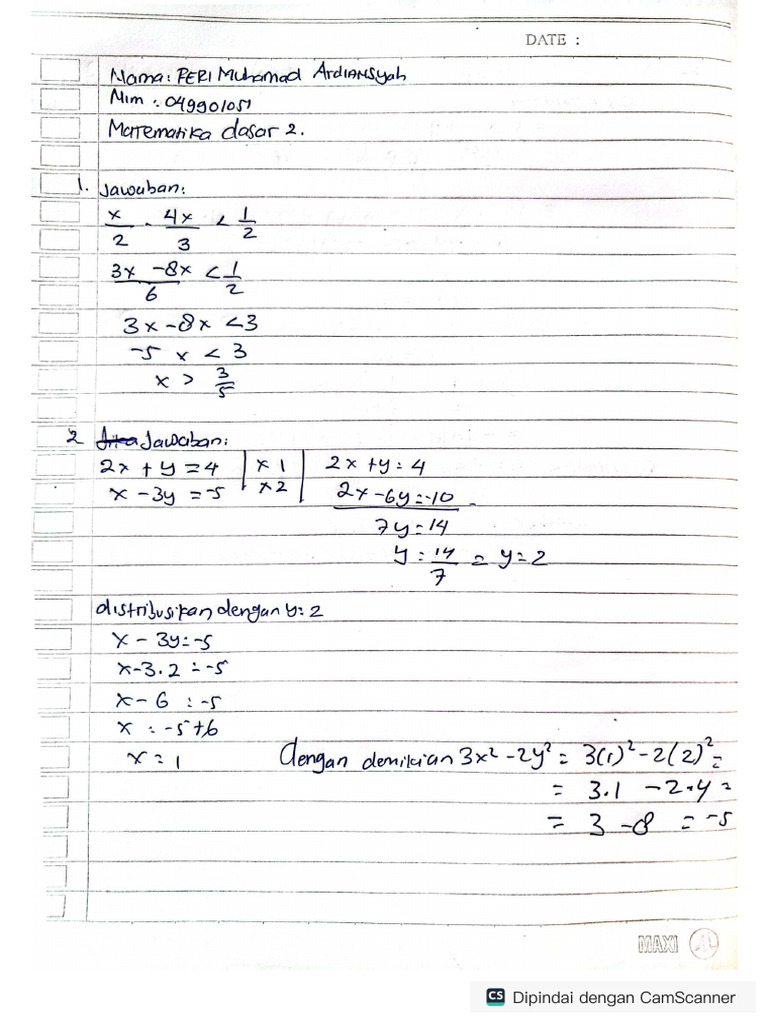 DATE :
Nama: PERI Muhamad ArdiANSyah
Nim : 049901051
Matematika dasar 2.
1. Jawaban:
x/2 - 4x/3 < 1/2
3x - 8x/6 < 1/2
3x - 8x < 3
-5 x < 3
x > 3/5
2 Jawaban:
2x + y = 4 | x 1 | 2x + y = 4
x - 3y = -5 | x 2 | 2x - 6y = -10 -
7y = 14
y = 14/7 = y = 2
distribusikan dengan y = 2
x - 3y = -5
x - 3 . 2 = -5
x - 6 = -5
x = -5 + 6
x = 1 Dengan demikian 3x² - 2y² = 3(1)² - 2(2)² =
= 3.1 - 2.4 =
= 3 - 8 = -5
MAXI
CS Dipindai dengan CamScanner